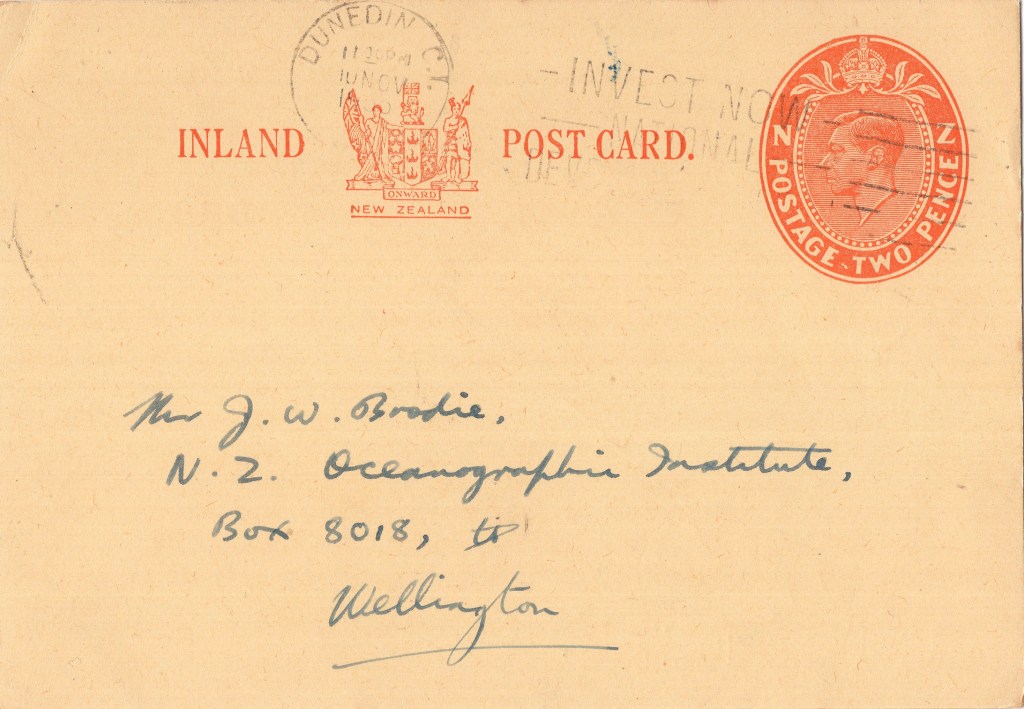 DUNEDIN C.1.
10 NOV
INVEST NOW
NATIONAL
INLAND POST CARD.
ONWARD
NEW ZEALAND
N Z
POSTAGE TWO PENCE
Mr J. W. Brodie,
N.Z. Oceanographic Institute,
Box 8018,
Wellington